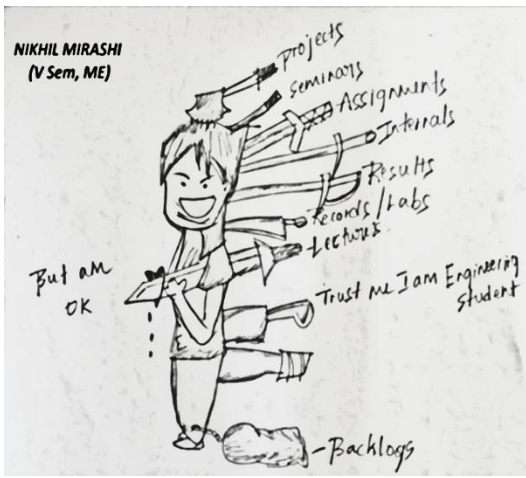 NIKHIL MIRASHI
(V Sem, ME)
projects
seminars
Assignments
Internals
Results
Records/Labs
Lectures
But am
OK
Trust me I am Engineering
Student
E
Backlogs